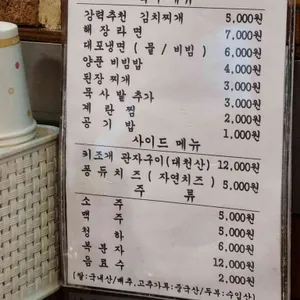 강력추천 김치찌개 5,000원
해 장 라 면 7,000원
대포냉면 ( 물 / 비빔 ) 6,000원
양푼 비빔밥 4,000원
된장 찌개 3,000원
목 사 발 추가 3,000원
계 란 찜 2,000원
공 기 밥 1,000원
사이드 메뉴
키조개 관자구이(대천산) 12,000원
퐁듀치즈 ( 자연치즈 ) 5,000원
주 류
소 주 5,000원
맥 주 5,000원
청 하 5,000원
복 분 자 6,000원
음 료 수 12,000원
2,000원
[쌀:국내산/배추,고추가루:중국산/두부:수입산]